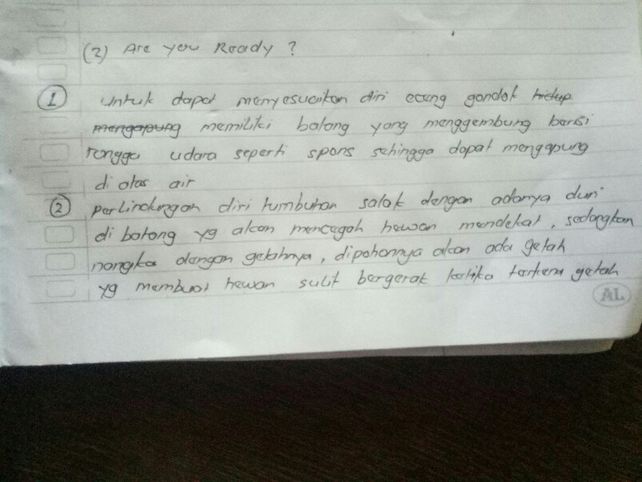 (2) Are you Ready ?
1 untuk dapat menyesuaikan diri eceng gondok hidup
mengapung memiliki batang yang menggembung berisi
rongga udara seperti spons sehingga dapat mengapung
di atas air
2 perlindungan diri tumbuhan salak dengan adanya duri
di batang yg akan mencegah hewan mendekat, sedangkan
nangka dengan getahnya, dipohonnya akan ada getah
yg membuat hewan sulit bergerak ketika terkena getah
AL